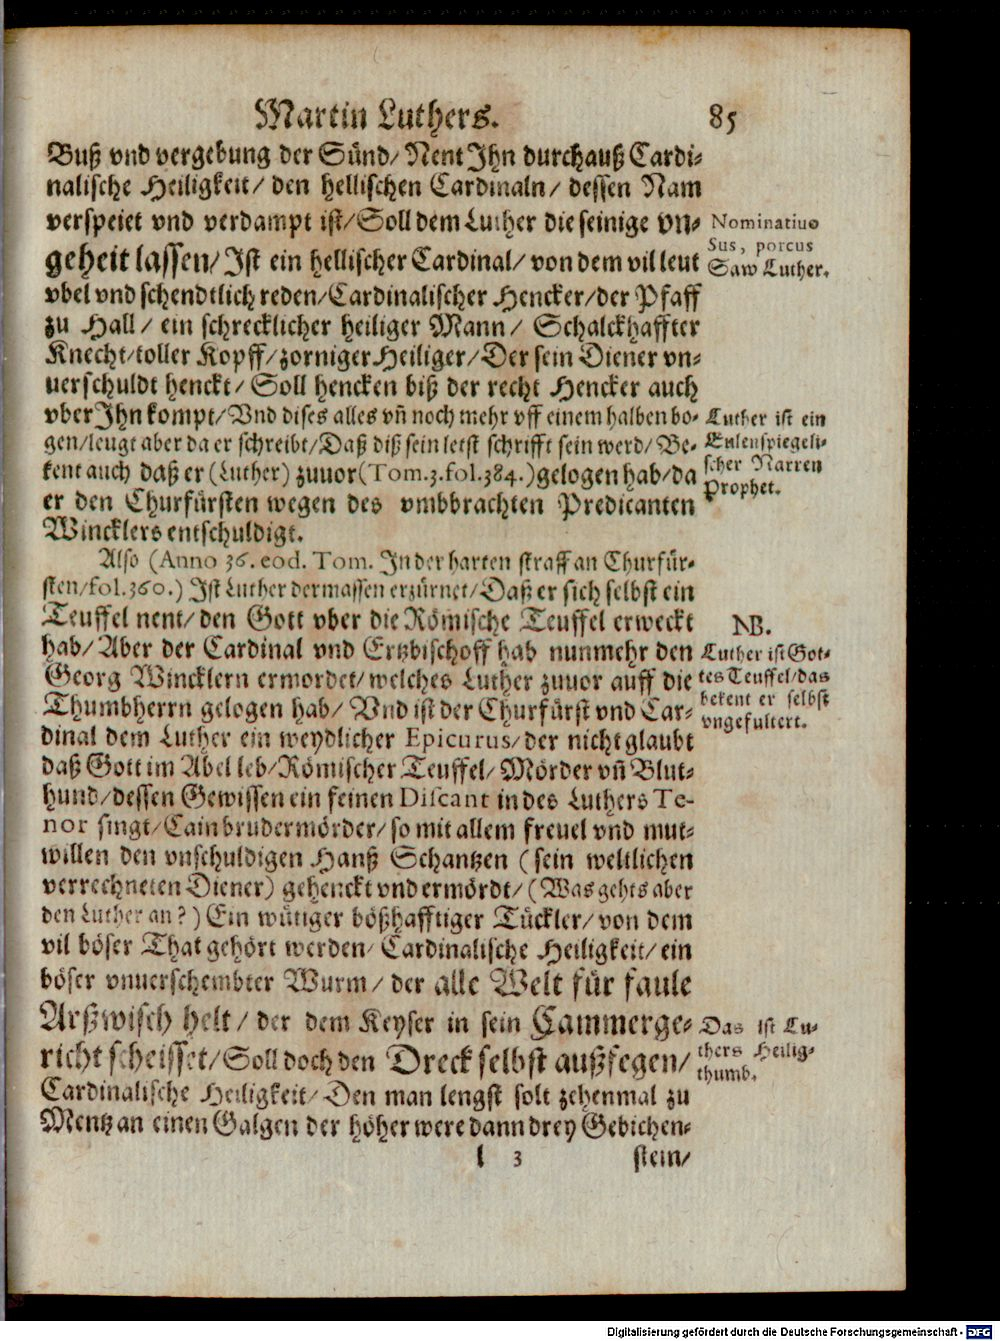 Martin Luthers. 85
Buß vnd vergebung der Sünd/ Nent Jhn durchauß Cardi-
nalische Heiligkeit/ den hellischen Cardinaln/ dessen Nam
verspeiet vnd verdampt ist/ Soll dem Luther die seinige vn-
geheit lassen/ Jst ein hellischer Cardinal/ von dem vil leut
vbel vnd schendtlich reden/ Cardinalischer Hencker/ der Pfaff
zu Hall/ ein schrecklicher heiliger Mann/ Schalckhaffter
Knecht/ toller Kopff/ zorniger Heiliger/ Der sein Diener vn-
uerschuldt henckt/ Soll hencken biß der recht Hencker auch
vber Jhn kompt/ Vnd dises alles vñ noch mehr vff einem halben bo-
gen/ leugt aber da er schreibt/ Daß diß sein letst schrifft sein werd/ Be-
kent auch daß er (Luther) zuuor (Tom.3.fol.384.) gelogen hab/ da
er den Churfürsten wegen des vmbbrachten Predicanten
Wincklers entschuldigt.
Also (Anno 36. eod. Tom. Jn der harten straff an Churfür-
sten/ fol.360.) Jst Luther dermassen erzürnet/ Daß er sich selbst ein
Teuffel nent/ den Gott vber die Römische Teuffel erweckt
hab/ Aber der Cardinal vnd Ertzbischoff hab nunmehr den
Georg Wincklern ermordet/ welches Luther zuuor auff die
Thumbherrn gelogen hab/ Vnd ist der Churfürst vnd Car-
dinal dem Luther ein weydlicher Epicurus/ der nicht glaubt
daß Gott im Abel leb/ Römischer Teuffel/ Mörder vñ Blut-
hund/ dessen Gewissen ein feinen Discant in des Luthers Te-
nor singt/ Cain brudermörder/ so mit allem freuel vnd mut-
willen den vnschuldigen Hanß Schantzen (sein weltlichen
verrechneten Diener) gehenckt vnd ermördt/ (Was gehts aber
den Luther an?) Ein wütiger bößhafftiger Tückler/ von dem
vil böser That gehört werden/ Cardinalische Heiligkeit/ ein
böser vnuerschembter Wurm/ der alle Welt für faule
Arßwisch helt/ der dem Keyser in sein Cammerge-
richt scheisset/ Soll doch den Dreck selbst außfegen/
Cardinalische Heiligkeit/ Den man lengst solt zehenmal zu
Mentz an einen Galgen der höher were dann drey Gebichen-
l 3 stein/
Nominatiuo
Sus, porcus
Saw Luther.
Luther ist ein
Eulenspiegeli-
scher Narren
Prophet.
NB.
Luther ist Got-
tes Teuffel/ das
bekent er selbst
vngefultert.
Das ist Lu-
thers Heilig-
thumb.
Digitalisierung gefördert durch die Deutsche Forschungsgemeinschaft - DFG